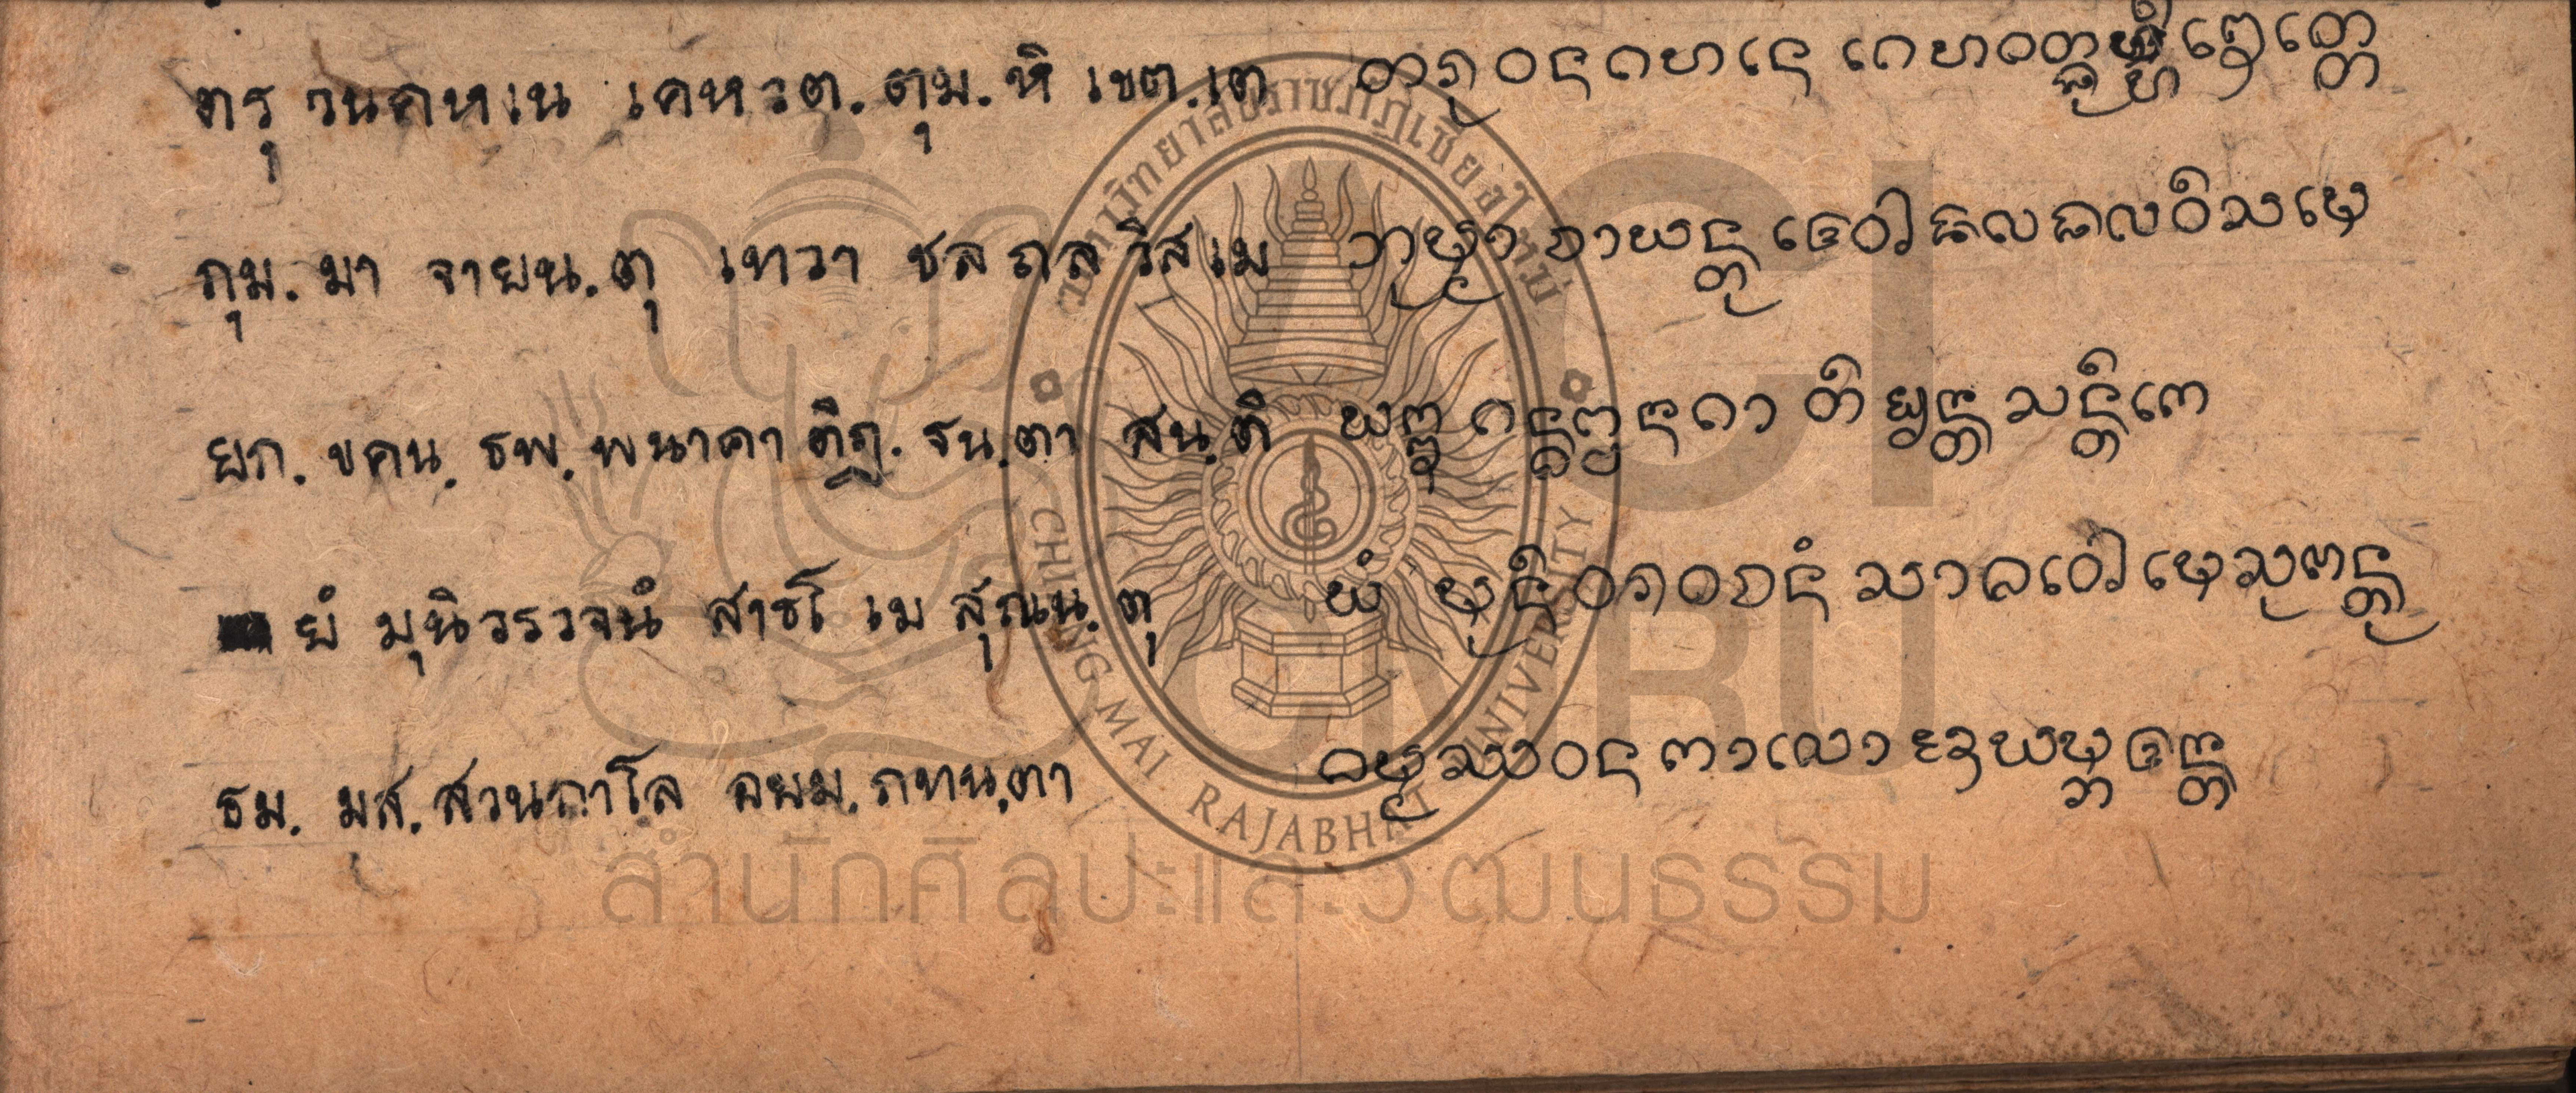 ตรุ วนคหเน เคหวต.ตุม.หิ เขต.เต ᨲᩁᩩᩅᨶᨣᩉᨶᩮ ᨣᩮᩉᩅᨲ᩠ᨳᩩᨾ᩠ᩉᩥ ᨡᩮᨲ᩠ᨲᩮ
ภุม.มา จายน.ตุ เทวา ชลถลวิสเม ᨽᩩᨾ᩠ᨾᩣ ᨧᩣᨿᨶ᩠ᨲᩩ ᨴᩮᩅᩤ ᨩᩃᨳᩃᩅᩥᩈᨾᩮ
ยก.ขคน.ธพ.พนาคา ติฏ.ฐน.ตา สน.ติ ᨿᨠ᩠ᨡ ᨣᨶ᩠ᨵᨻ᩠ᨻᨶᨣᩣ ᩈᨶ᩠ᨲᩥᨠᩮ
ยํ มุนิวรวจนํ สาธโ เม สุณน.ตุ ᨿᩴ ᨾᩩᨶᩥᩅᩁᩅᨧᨶᩴ ᩈᩣᨵᩅᩮᩤ ᨾᩮ ᩈᩩᨱᨶ᩠ᨲᩩ
ธม.มส.สวนกาโล อยม.ภทน.ตา ᨵᨾ᩠ᨾᩔᩅᨶ ᨠᩣᩃᩮᩣ ᩋᨿᨾ᩠ᨽᨴᨶ᩠ᨲ
ACI
CMRU
มหาวิทยาลัยราชภัฏเชียงใหม่
CHIANG MAI RAJABHAT UNIVERSITY
สำนักศิลปะและวัฒนธรรม